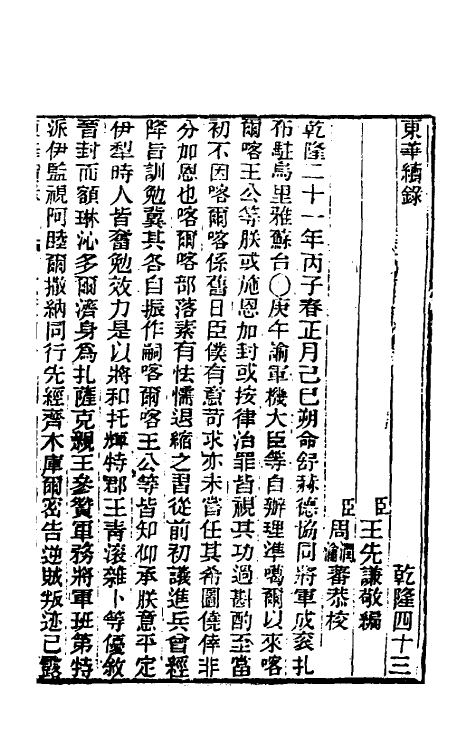 東華續錄　乾隆四十三
臣王先謙敬編
臣周潤瀹蕃恭校
乾隆二十一年丙子春正月己巳朔命舒赫德協同將軍成袞扎
布駐烏里雅蘇台○庚午諭軍機大臣等自辦理準噶爾以來喀
爾喀王公等朕或施恩加封或按律治罪皆視其功過斟酌至當
初不因喀爾喀係舊日臣僕有意苛求亦未嘗任其希圖僥倖非
分加恩也喀爾喀部落素有怯懦退縮之習從前初議進兵曾經
降旨訓勉冀其各自振作嗣喀爾喀王公等皆知仰承朕意平定
伊犁時人皆奮勉效力是以將和托輝特郡王青滾雜卜等優敘
晉封而額琳沁多爾濟身為扎薩克親王參贊軍務將軍班第特
派伊監視阿睦爾撒納同行先經齊木庫爾密告逆賊叛迹已露